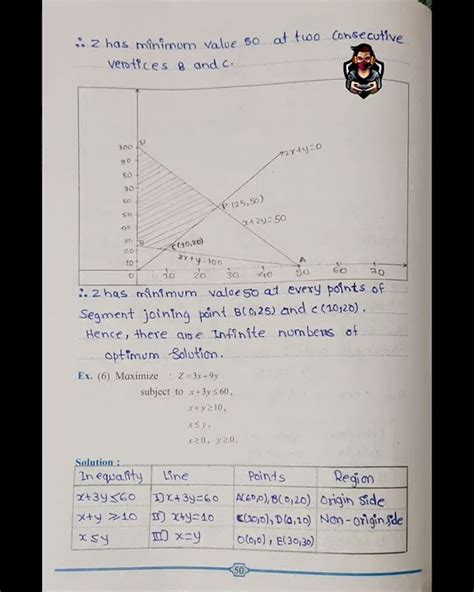 ∴ Z has minimum value 50 at two consecutive
verotices B and C.
100
90
80
70
60
50
40
20
10
0
10
20
30
40
50
60
70
2x+y=0
P(25,50)
x+2y=50
C(10,20)
2x+y=100
A
B
∴ Z has minimum value 50 at every points of
Segment joining point B(0,25) and C(10,20).
Hence, there are Infinite numbers of
optimum Solution.
Ex. (6) Maximize : Z=3x+9y
subject to x+3y≤60,
x+y≥10,
x≤y,
x≥0, y≥0.
Solution :
Inequality Line Points Region
x+3y≤60 I) x+3y=60 A(60,0), B(0,20) Origin side
x+y≥10 II) x+y=10 C(10,0), D(0,10) Non-origin side
x≤y III) x=y O(0,0), E(30,30)
50